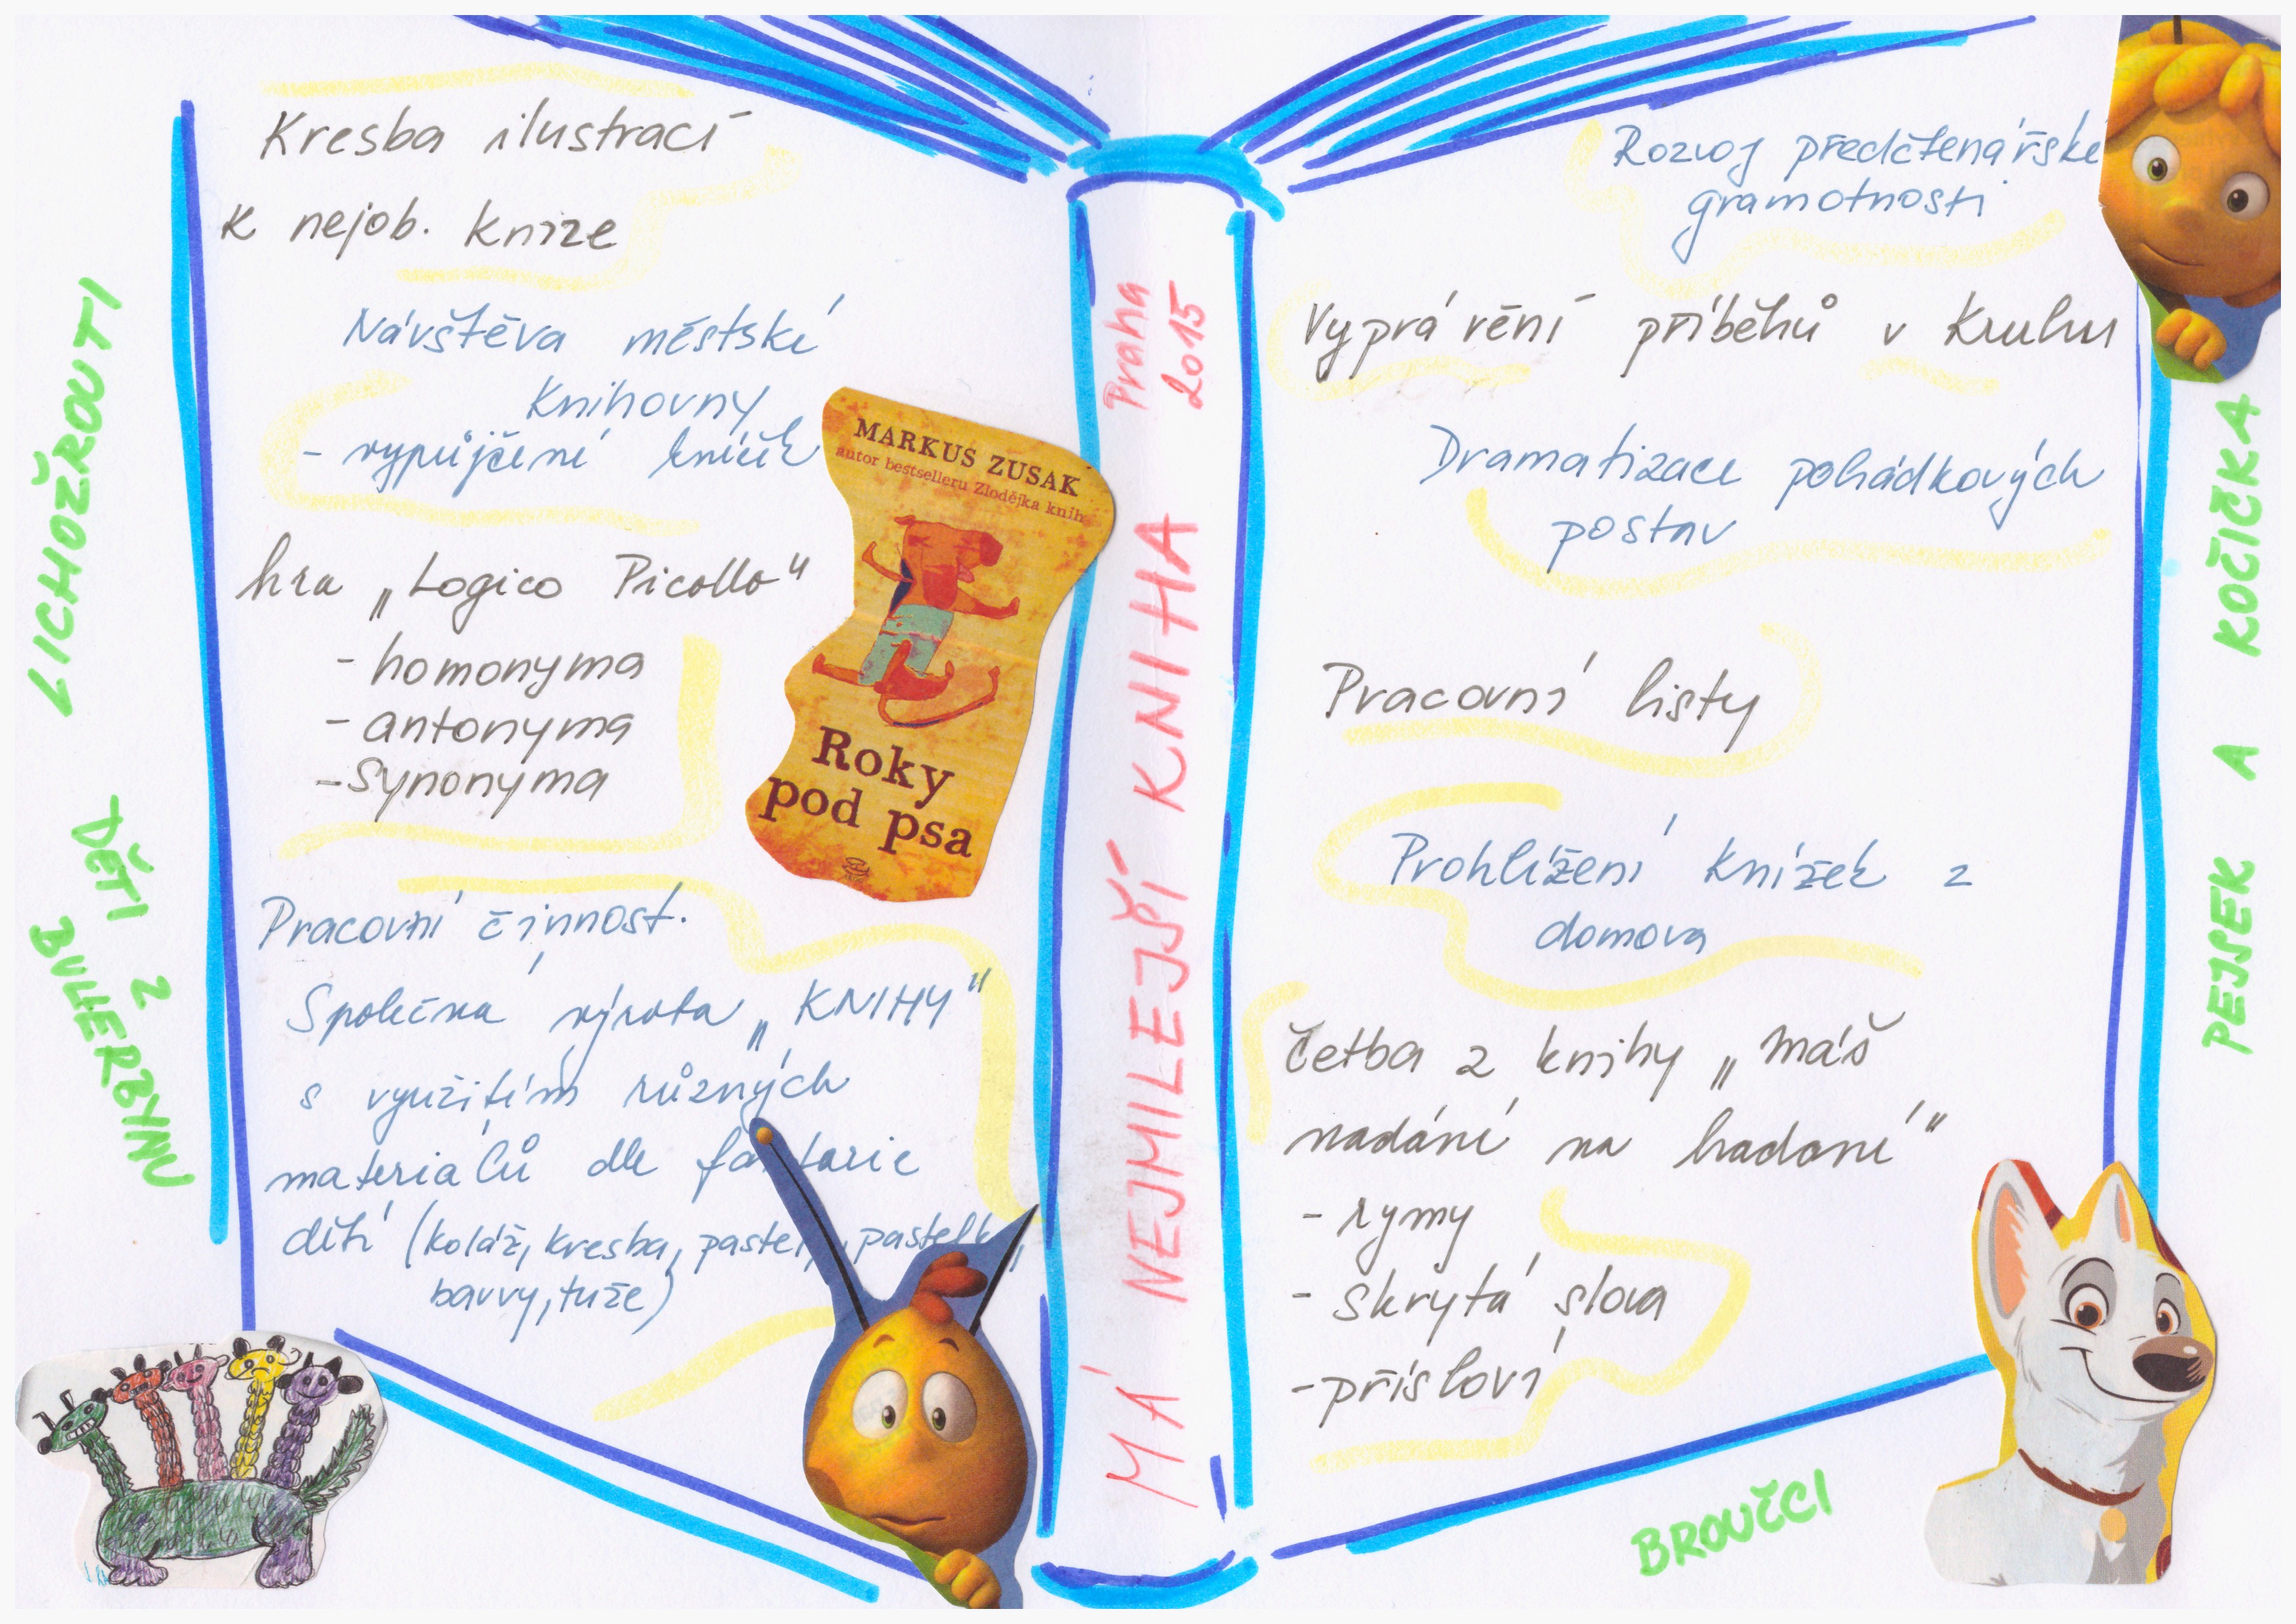 Kresba ilustrací
k nejob. knize
Návštěva městské
Knihovny
- vypůjčení knížek
hra „Logico Picollo"
- homonyma
- antonyma
- synonyma
Pracovní činnost.
Společná výroba „KNIHY"
s využitím různých
materiálů dle fantazie
dětí (koláž, kresba, pastel, pastelky,
barvy, tuže)
MARKUS ZUSAK
autor bestselleru Zlodějka knih
Roky
pod psa
LICHOŽROUTI
DĚTI
Z
BULLERBYNU
Praha
2015
MÁ NEJMILEJŠÍ KNIHA
Rozvoj předčtenářské
gramotnosti
Vyprávění příběhů v Kruhu
Dramatizace pohádkových
postav
Pracovní listy
Prohlížení knížek z
domova
Četba z knihy „Máš
nadání na hádání"
- rýmy
- skrytá slova
- přísloví
PEJSEK A KOČIČKA
BROUČCI